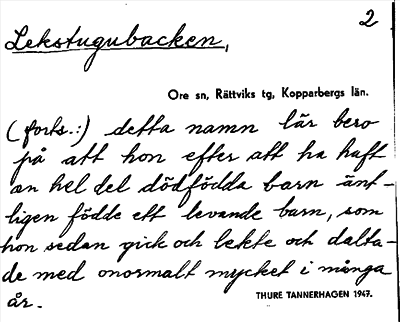 2
Lekstugubacken,
Ore sn, Rättviks tg, Kopparbergs län.
(forts.:) detta namn lär bero
på att hon efter att ha haft
en hel del dödfödda barn änt-
ligen födde ett levande barn, som
hon sedan gick och lekte och dalta-
de med onormalt mycket i många
år.
THURE TANNERHAGEN 1947.